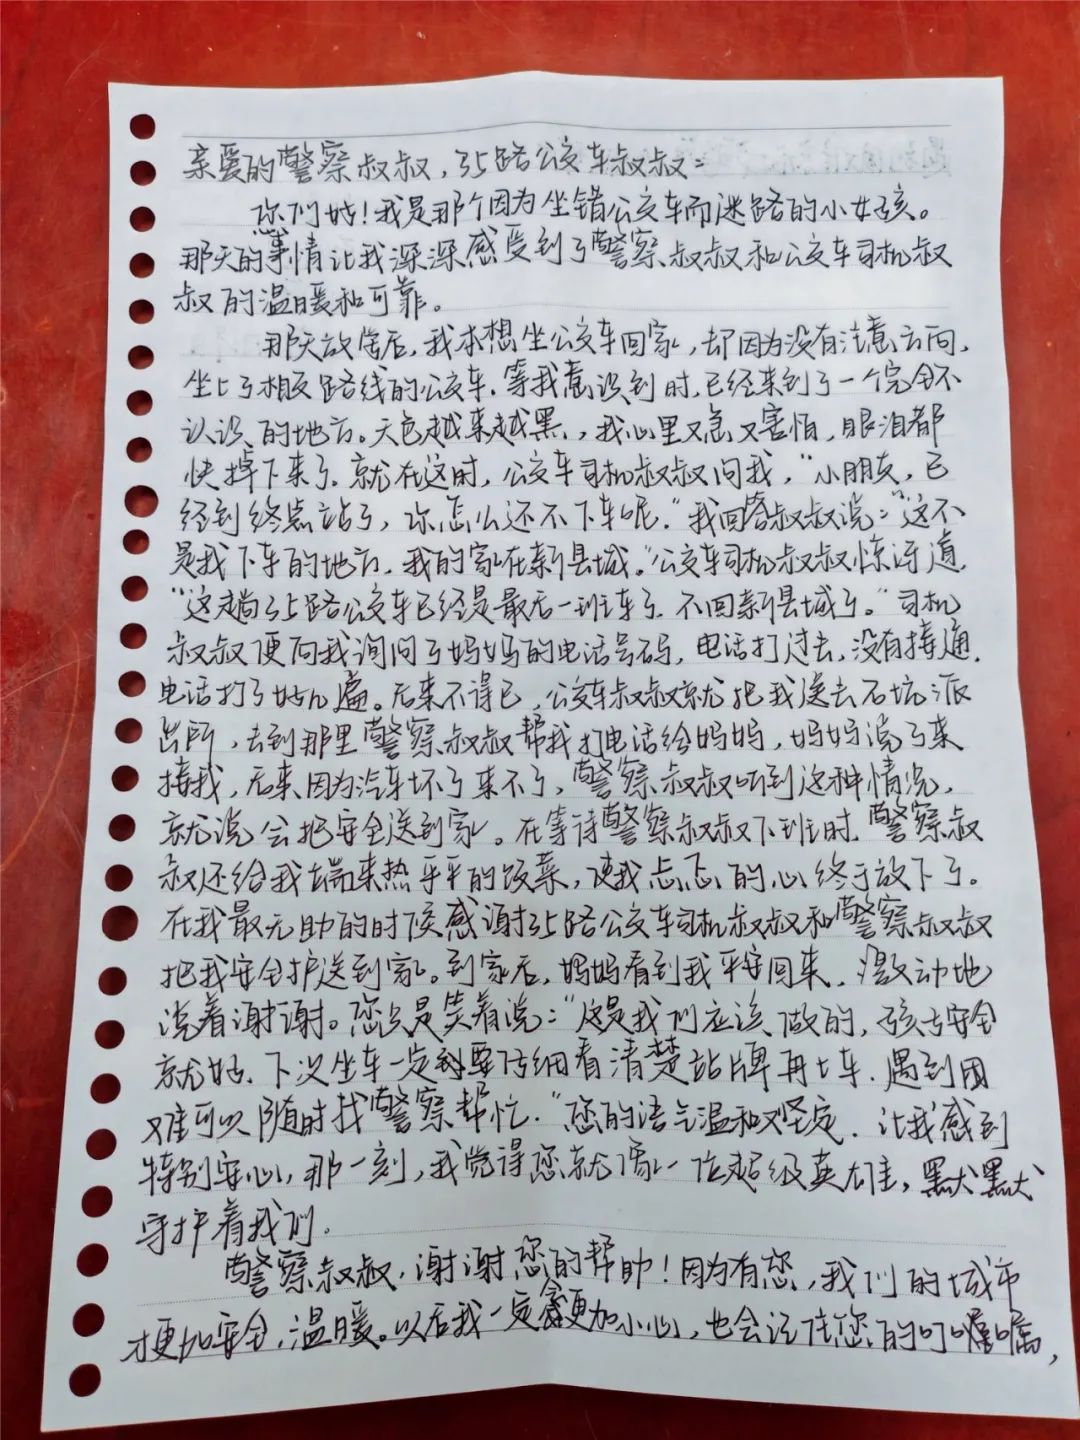 亲爱的警察叔叔,35路公交车叔叔:
您们好!我是那个因为坐错公交车而迷路的小女孩。
那天的事情让我深深感受到了警察叔叔和公交车司机叔
叔的温暖和可靠。
那天放学后,我本想坐公交车回家,却因为没有注意方向,
坐上了相反路线的公交车.等我意识到时,已经来到了一个完全不
认识的地方。天色越来越黑,我心里又急又害怕,眼泪都
快掉下来了.就在这时,公交车司机叔叔问我,“小朋友,已
经到终点站了,你怎么还不下车呢.”我回答叔叔说:“这不
是我下车的地方.我的家在新县城。”公交车司机叔叔惊讶道.
“这趟35路公交车已经是最后一班车了.不回新县城了。”司机
叔叔便向我询问了妈妈的电话号码,电话打过去,没有接通.
电话打了好几遍。后来不得已,公交车叔叔就把我送去石坑派
出所,去到那里警察叔叔帮我打电话给妈妈,妈妈说了来
接我,后来因为汽车坏了来不了,警察叔叔听到这种情况,
就说会把安全送到家。在等待警察叔叔下班时.警察叔
叔还给我端来热乎乎的饭菜,使我忐忑的心终于放下了。
在我最无助的时候感谢35路公交车司机叔叔和警察叔叔
把我安全护送到家。到家后,妈妈看到我平安回来,激动地
说着谢谢。您只是笑着说:“这是我们应该做的,孩子安全
就好.下次坐车一定要仔细看清楚站牌再上车.遇到困
难可以随时找警察帮忙.”您的语气温和又坚定.让我感到
特别安心,那一刻,我觉得您就像一位超级英雄,默默
守护着我们.
警察叔叔,谢谢您的帮助!因为有您,我们的城市
才更加安全,温暖。以后我一定会更加小心,也会记住您的叮嘱,